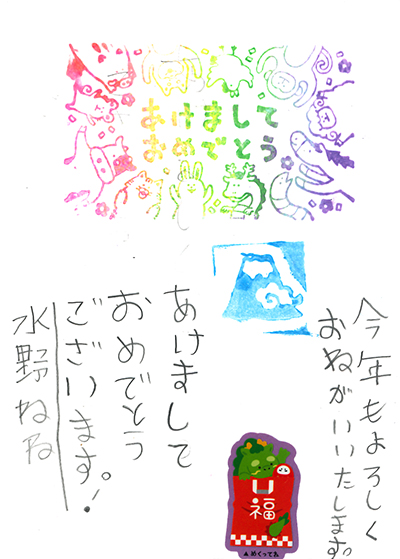 あけまして
おめでとう
今年もよろしく
おねがいいたします。
あけまして
おめでとう
ございます。!
水野ねね
福
▲めくってね